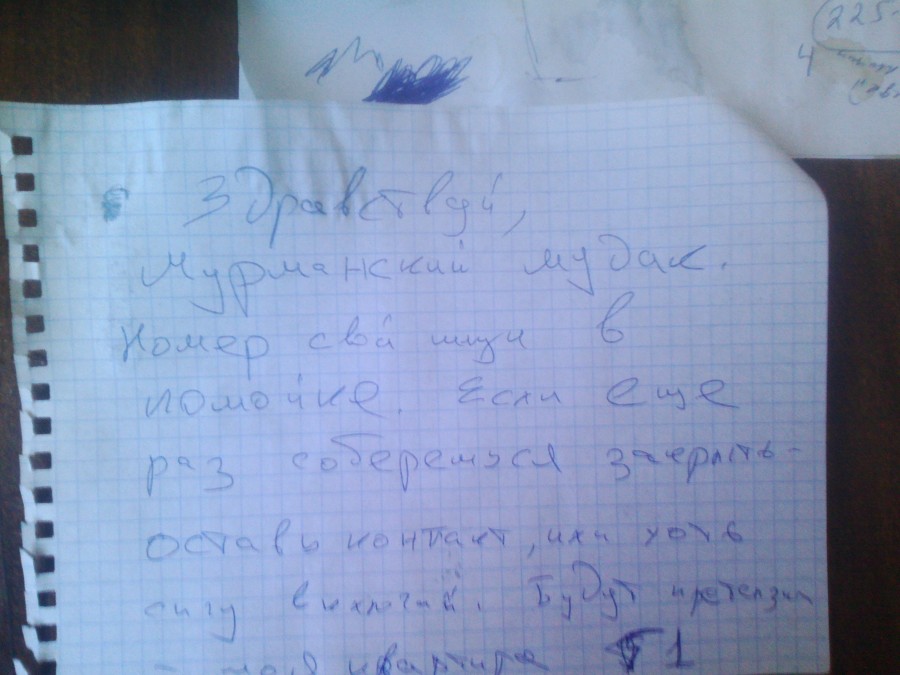 225-
4
Здравствуй,
Мурманский мудак.
Номер свой ищи в
помойке. Если еще
раз соберешься закрыть-
оставь контакт, или хоть
сигу выключи. Будут претензии
- моя квартира 1